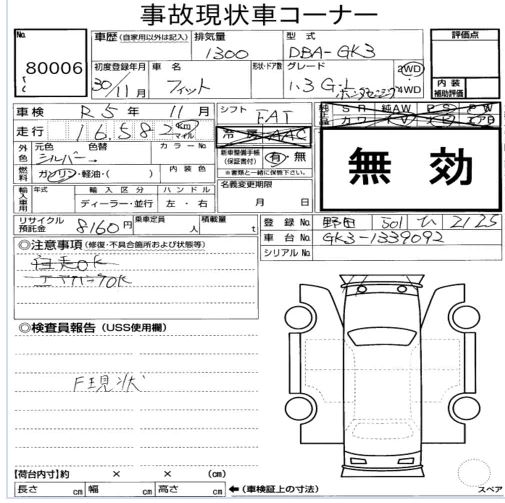 事故現状車コーナー
No. 80006
車歴 (自家用以外は記入) 排気量 1300 型式 DBA-GK3
初度登録年月 30年11月 車名 フィット 形状・ドア数 グレード 1.3 G・L ホンダセンシング 2WD・4WD
評価点
内装補助評価
車検 R5年11月 シフト FAT
走行 16,582 km マイル 冷房 AAC
純正 SR 純AW PS PW
カワ TV ナビ エアB
外色 元色 シルバー 色替 カラーNo.
新車整備手帳(保証書付) 有・無
※書類と一緒に保管して下さい。
燃料 ガソリン・軽油・( ) 内装色
名義変更期限 月 日
無効
輸入車用 年式 輸入区分 ディーラー・並行 ハンドル 左・右
リサイクル預託金 8160円 乗車定員 人 積載量 t
登録No. 野田 501 ひ 2125
車台No. GK3-1339092
シリアルNo.
◎注意事項 (修復・不具合箇所および状態等)
自走OK
エアバックOK
◎検査員報告 (USS使用欄)
F現状
【荷台内寸】約 × × (cm)
長さ cm 幅 cm 高さ cm ←(車検証上の寸法)
スペア